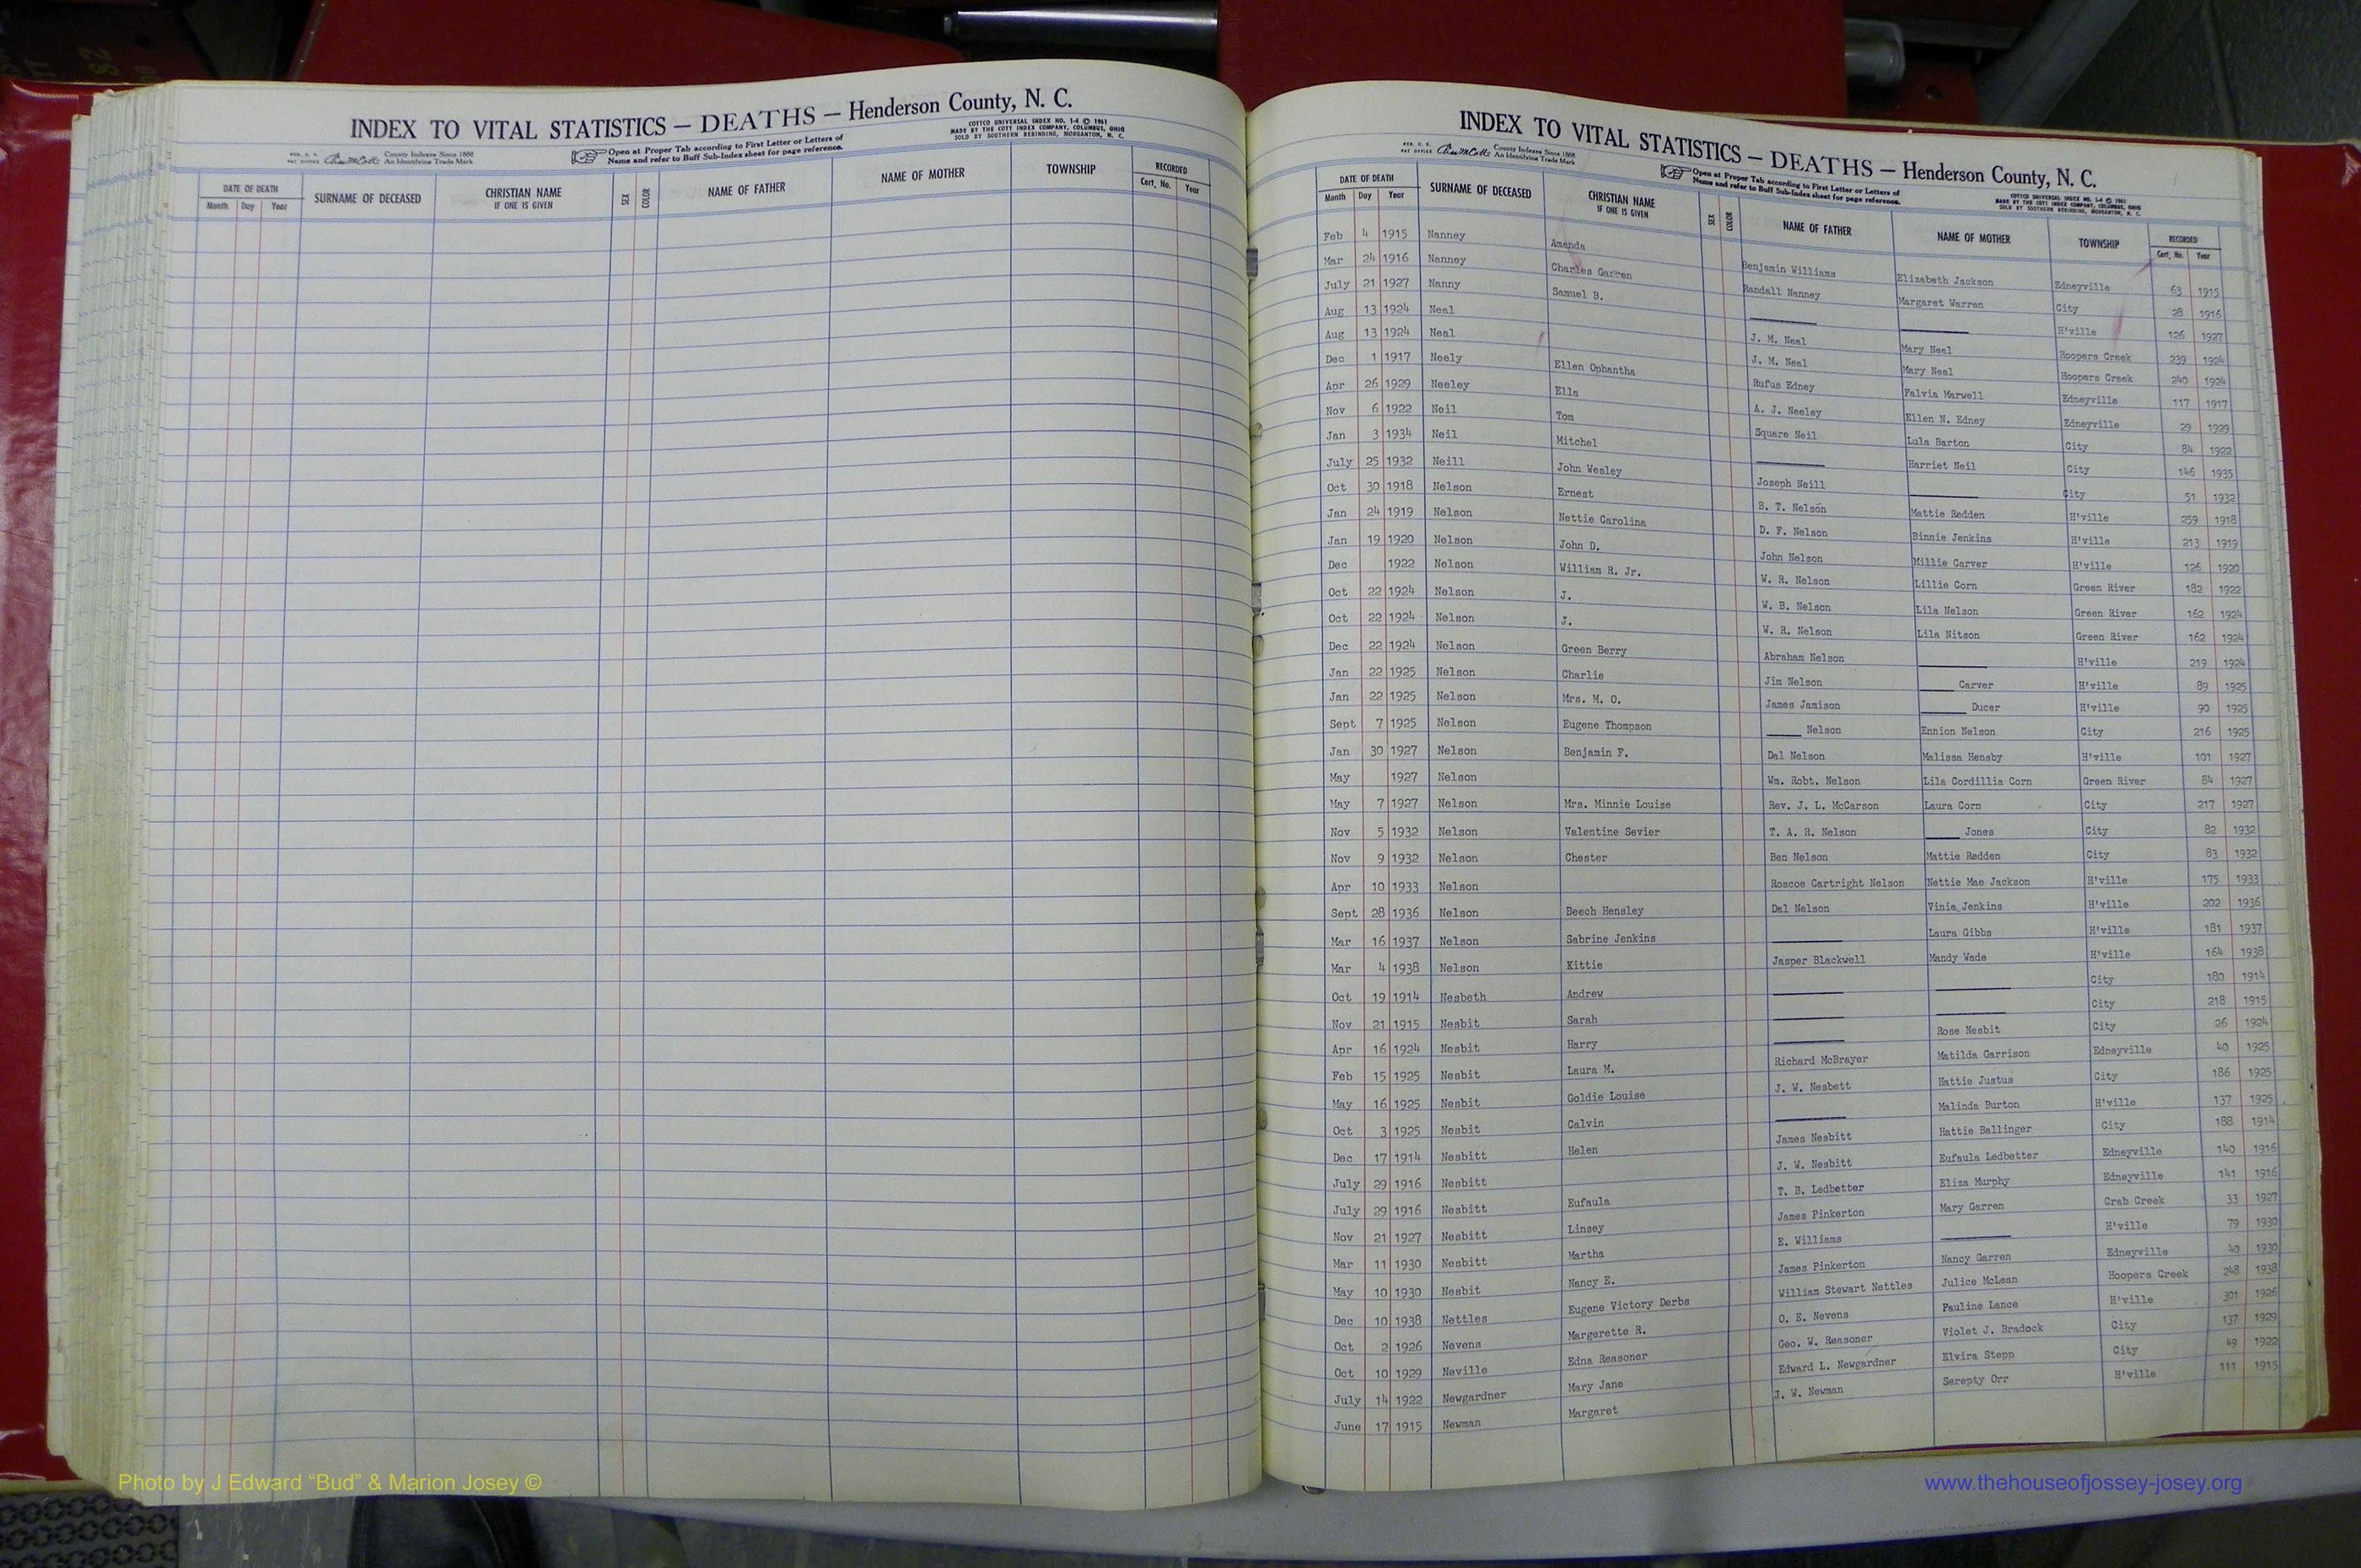 INDEX TO VITAL STATISTICS — DEATHS — Henderson County, N. C.
COTTCO UNIVERSAL INDEX NO. 1-4 © 1961
MADE BY THE COTT INDEX COMPANY, COLUMBUS, OHIO
SOLD BY SOUTHERN REBINDING, MORGANTON, N. C.
County Indexes Since 1888
An Identifying Trade Mark
Open at Proper Tab according to First Letter or Letters of
Name and refer to Buff Sub-Index sheet for page reference.
DATE OF DEATH SURNAME OF DECEASED CHRISTIAN NAME IF ONE IS GIVEN SEX COLOR NAME OF FATHER NAME OF MOTHER TOWNSHIP RECORDED
Month Day Year Cert. No. Year
INDEX TO VITAL STATISTICS — DEATHS — Henderson County, N. C.
County Indexes Since 1888
An Identifying Trade Mark
Open at Proper Tab according to First Letter or Letters of
Name and refer to Buff Sub-Index sheet for page reference.
COTTCO UNIVERSAL INDEX NO. 1-4 © 1961
MADE BY THE COTT INDEX COMPANY, COLUMBUS, OHIO
SOLD BY SOUTHERN REBINDING, MORGANTON, N. C.
DATE OF DEATH SURNAME OF DECEASED CHRISTIAN NAME IF ONE IS GIVEN SEX COLOR NAME OF FATHER NAME OF MOTHER TOWNSHIP RECORDED
Month Day Year Cert. No. Year
Feb 4 1915 Nanney Amanda Benjamin Williams Elizabeth Jackson Edneyville 63 1915
Mar 24 1916 Nanney Charles Garren Randall Nanney Margaret Warren City 28 1916
July 21 1927 Nanny Samuel B. H'ville 126 1927
Aug 13 1924 Neal J. M. Neal Mary Neal Hoopers Creek 239 1924
Aug 13 1924 Neal J. M. Neal Mary Neal Hoopers Creek 240 1924
Dec 1 1917 Neely Ellen Ophantha Rufus Edney Falvia Marwell Edneyville 117 1917
Apr 26 1929 Neeley Ella A. J. Neeley Ellen N. Edney Edneyville 29 1929
Nov 6 1922 Neil Tom Square Neil Lula Barton City 84 1922
Jan 3 1934 Neil Mitchel Harriet Neil City 146 1935
July 25 1932 Neill John Wesley Joseph Neill City 51 1932
Oct 30 1918 Nelson Ernest B. T. Nelson Mattie Redden H'ville 259 1918
Jan 24 1919 Nelson Nettie Carolina D. F. Nelson Binnie Jenkins H'ville 213 1919
Jan 19 1920 Nelson John D. John Nelson Millie Carver H'ville 126 1920
Dec 1922 Nelson William R. Jr. W. R. Nelson Lillie Corn Green River 182 1922
Oct 22 1924 Nelson J. W. B. Nelson Lila Nelson Green River 162 1924
Oct 22 1924 Nelson J. W. R. Nelson Lila Nitson Green River 162 1924
Dec 22 1924 Nelson Green Berry Abraham Nelson H'ville 219 1924
Jan 22 1925 Nelson Charlie Jim Nelson Carver H'ville 89 1925
Jan 22 1925 Nelson Mrs. M. O. James Jamison Ducer H'ville 90 1925
Sept 7 1925 Nelson Eugene Thompson Nelson Ennion Nelson City 216 1925
Jan 30 1927 Nelson Benjamin F. Dal Nelson Malissa Hensby H'ville 101 1927
May 1927 Nelson Wm. Robt. Nelson Lila Cordillia Corn Green River 84 1927
May 7 1927 Nelson Mrs. Minnie Louise Rev. J. L. McCarson Laura Corn City 217 1927
Nov 5 1932 Nelson Valentine Sevier T. A. R. Nelson Jones City 82 1932
Nov 9 1932 Nelson Chester Ben Nelson Mattie Redden City 83 1932
Apr 10 1933 Nelson Roscoe Cartright Nelson Nettie Mae Jackson H'ville 175 1933
Sept 28 1936 Nelson Beech Hensley Dal Nelson Vinie Jenkins H'ville 202 1936
Mar 16 1937 Nelson Sabrine Jenkins Laura Gibbs H'ville 181 1937
Mar 4 1938 Nelson Kittie Jasper Blackwell Mandy Wade H'ville 164 1938
Oct 19 1914 Nesbeth Andrew City 180 1914
Nov 21 1915 Nesbit Sarah City 218 1915
Apr 16 1924 Nesbit Harry Rose Nesbit City 26 1924
Feb 15 1925 Nesbit Laura M. Richard McBrayer Matilda Garrison Edneyville 40 1925
May 16 1925 Nesbit Goldie Louise J. W. Nesbett Hattie Justus City 186 1925
Oct 3 1925 Nesbit Calvin Malinda Burton H'ville 137 1925
Dec 17 1914 Nesbitt Helen James Nesbitt Hattie Ballinger City 188 1914
July 29 1916 Nesbitt J. W. Nesbitt Eufaula Ledbetter Edneyville 140 1916
July 29 1916 Nesbitt Eufaula T. B. Ledbetter Eliza Murphy Edneyville 141 1916
Nov 21 1927 Nesbitt Linsey James Pinkerton Mary Garren Crab Creek 33 1927
Mar 11 1930 Nesbitt Martha E. Williams H'ville 79 1930
May 10 1930 Nesbit Nancy E. James Pinkerton Nancy Garren Edneyville 40 1930
Dec 10 1938 Nettles Eugene Victory Derbs William Stewart Nettles Julice McLean Hoopers Creek 248 1938
Oct 2 1926 Nevens Margerette R. O. E. Nevens Pauline Lance H'ville 301 1926
Oct 10 1929 Neville Edna Reasoner Geo. W. Reasoner Violet J. Bradock City 137 1929
July 14 1922 Newgardner Mary Jane Edward L. Newgardner Elvira Stepp City 49 1922
June 17 1915 Newman Margaret J. W. Newman Serepty Orr H'ville 111 1915
Photo by J Edward “Bud” & Marion Josey ©
www.thehouseofjossey-josey.org